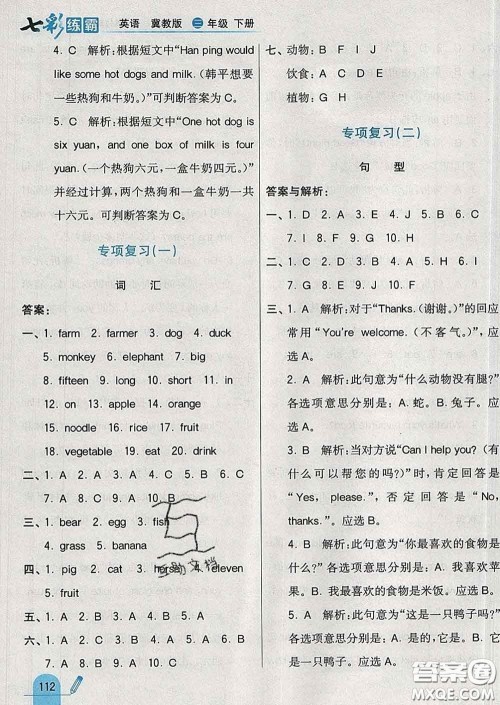 七彩练霸 英语 冀教版 三年级 下册
4. C 解析:根据短文中“Han ping would
like some hot dogs and milk.(韩平想要
一些热狗和牛奶。)”可判断答案为 C。
5. C 解析:根据短文中“One hot dog is
six yuan, and one box of milk is four
yuan.(一个热狗六元,一盒牛奶四元。)”
并经过计算,两个热狗和一盒牛奶一共
十六元。可判断答案为 C。
专项复习(一)
词 汇
答案:
一、1. farm 2. farmer 3. dog 4. duck
5. monkey 6. elephant 7. big
8. fifteen 9. long 10. short 11. in
12. on 13. apple 14. orange
15. noodle 16. rice 17. fruit
18. vegetable 19. eat 20. drink
二、1. C 2. A 3. A 4. C 5. B 6. A
7. A 8. C 9. A 10. B
三、1. bear 2. egg 3. fish
4. grass 5. banana
四、1. pig 2. cat 3. horse 4. eleven
5. fruit
五、1. A 2. A 3. B 4. A 5. A
六、1. C 2. A 3. B 4. B 5. A
112
七、动物: B F I J
饮食: A C D E
植物: G H
专项复习(二)
句 型
答案与解析:
一、1. D 2. A 3. E 4. J 5. B 6. C
7. I 8. F 9. G 10. H
二、1. C 2. A 3. B 4. D 5. G 6. E
7. F 8. I 9. J 10. H
三、1. A 解析:对于“Thanks.(谢谢。)”的回应
常用“You're welcome.(不客气。)”,应
选 A。
2. A 解析:此句意为“什么动物没有腿?”
各选项意思分别是:A. 蛇。B. 兔子。应
选 A。
3. B 解析:当对方说“Can I help you?(有
什么可以帮您的吗?)”时,肯定回答是
“Yes, please.”,否定回答是“No,
thanks.”。应选 B。
4. B 解析:此句意为“你最喜欢的食物是
什么?”各选项意思分别是:A. 我喜欢苹
果。B. 我最喜欢的食物是米饭。应选 B。
5. A 解析:此句意为“这是一只鸭子吗?”
各选项意思分别是:A. 是的,它是。B. 它
是一只鸭子。应选 A。
互助文档
答案圈
MXQE.COM